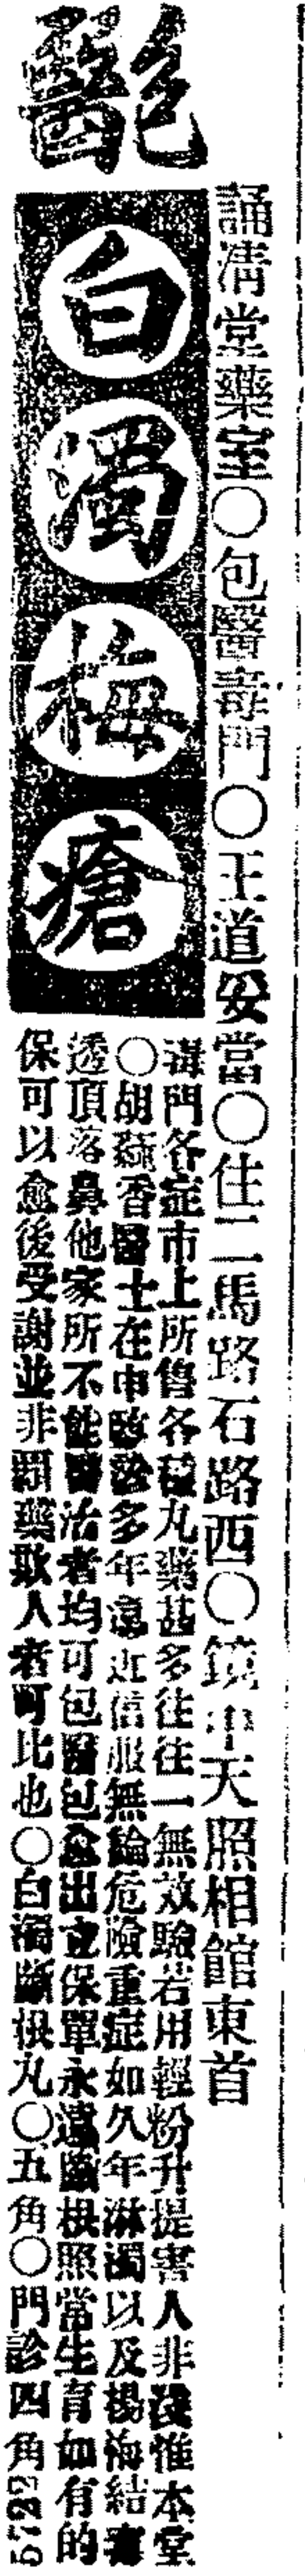 包醫
白濁梅瘡
誦清堂藥室○包醫毒門○王道妥當○住二馬路石路西○鏡中天照相館東首
毒門各症市上所售各種丸藥甚多往往一無效驗若用輕粉升提害人非淺惟本堂
○胡蘊香醫士在申啟診多年遠近信服無論危險重症如久年淋濁以及楊梅結毒
透頂落鼻他家所不能醫治者均可包醫包愈出立保單永遠斷根照常生育如有的
保可以愈後受謝並非賣藥欺人者可比也○白濁斷根丸○五角○門診四角 5722